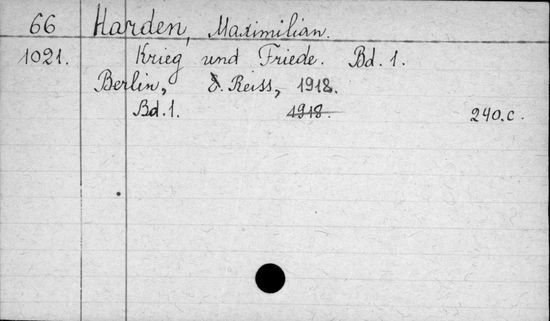 66 Harden, Maximilian.
1021. Krieg und Friede. Bd. 1.
Berlin, E. Reiss, 1918.
Bd. 1. 1918. 240.c.